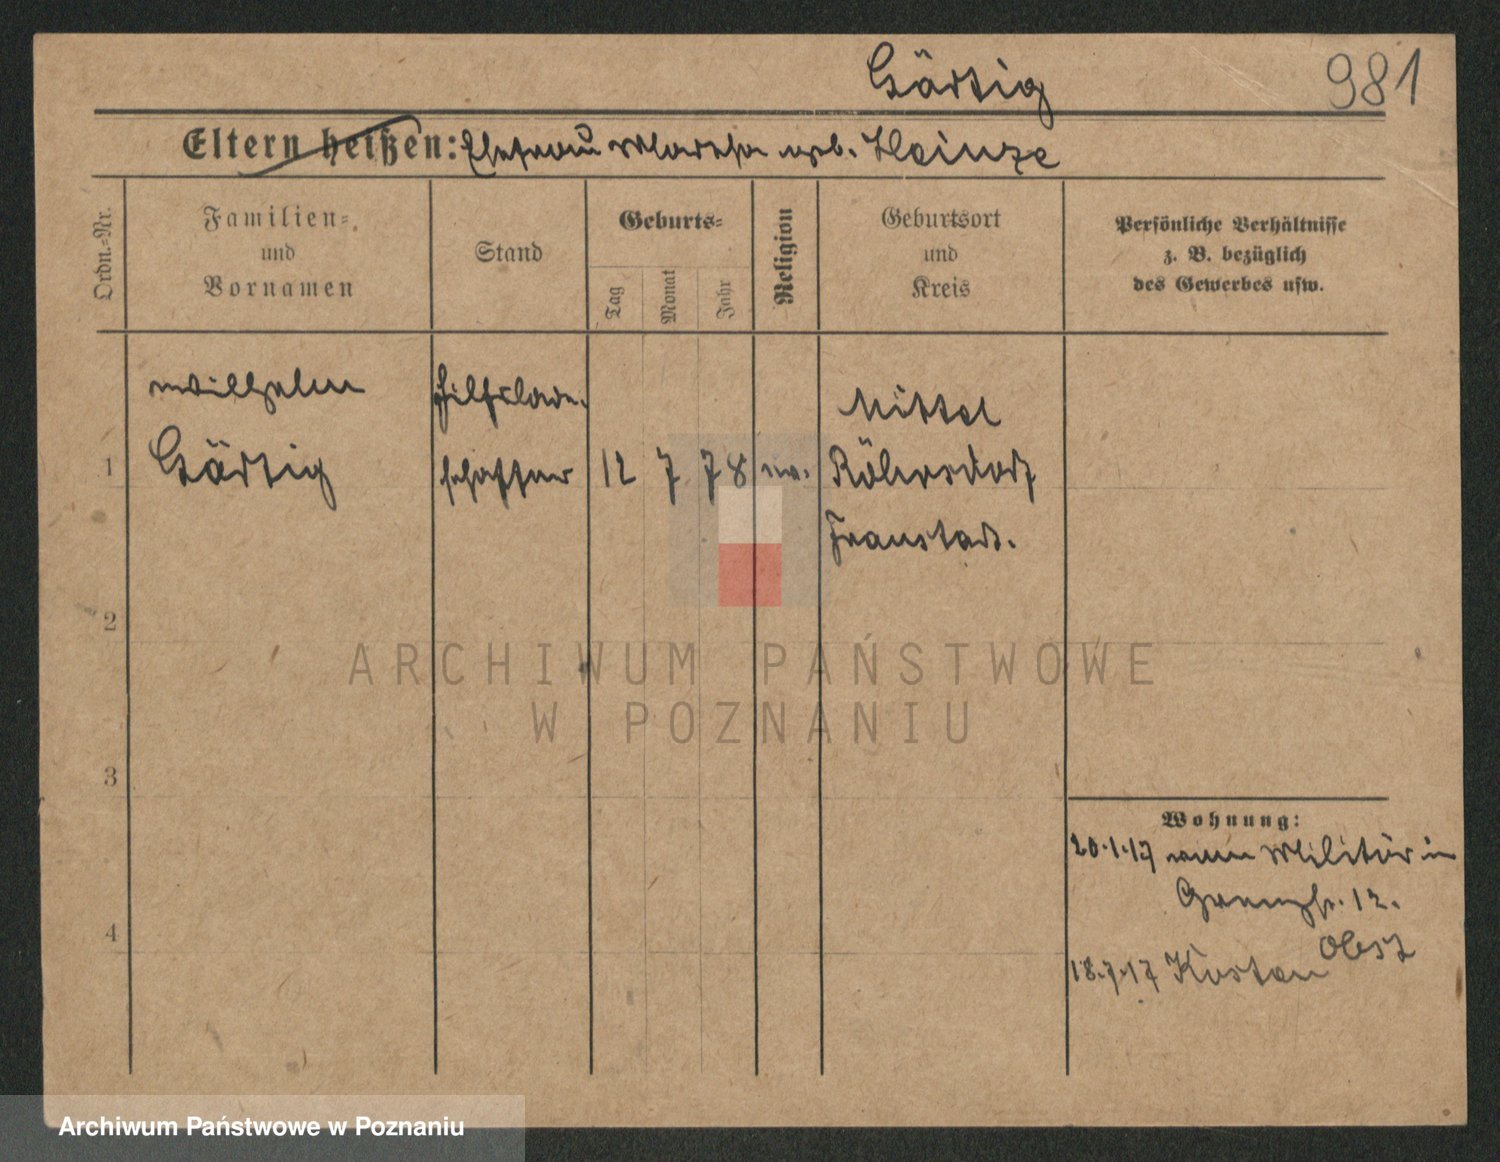 Gärtig
981
Eltern heißen: Ehefrau Martha geb. Heinze
Ordn.=Nr.
Familien=
und
Vornamen
Stand
Geburts=
Tag
Monat
Jahr
Religion
Geburtsort
und
Kreis
Persönliche Verhältnisse
z. B. bezüglich
des Gewerbes usw.
1
Wilhelm
Gärtig
Hilfslade-
schaffner
12 7 78
ev.
Mittel
Röhrsdorf
Fraustadt.
2
3
4
Wohnung:
20.1.17 vom Militär in
12.
Obst
18.7.17 Kosten
ARCHIWUM PAŃSTWOWE
W POZNANIU
Archiwum Państwowe w Poznaniu